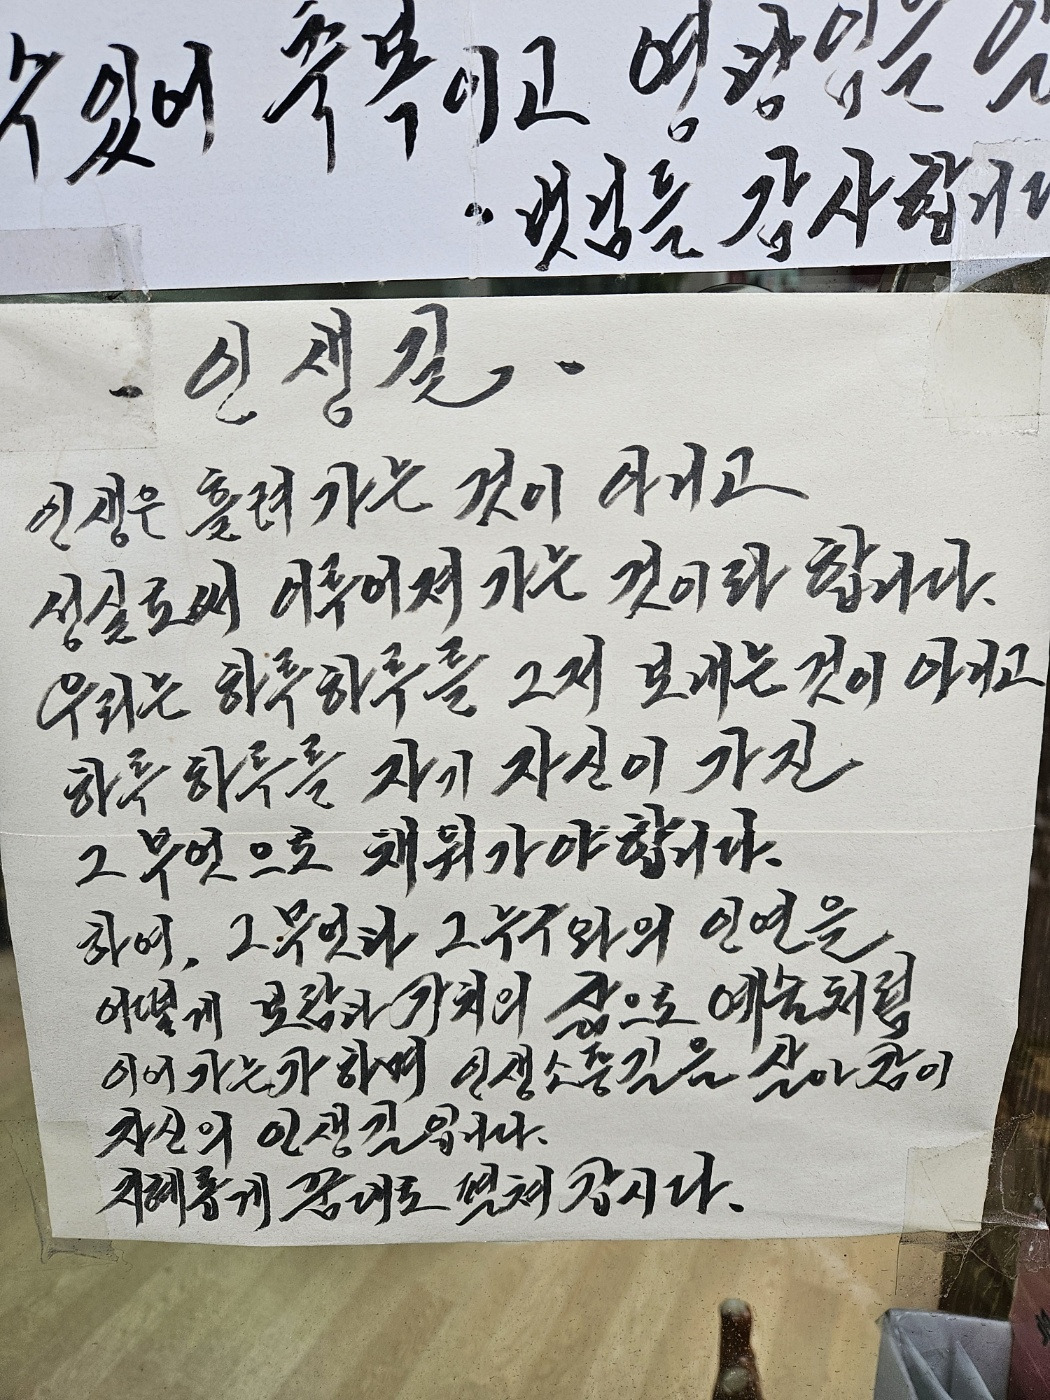 수 있어 축복이고 영광임을 
· 벗님들 감사합니다
· 인생길 ·
인생은 흘러 가는 것이 아니고
성실로써 이루어져 가는 것이라 합니다.
우리는 하루하루를 그저 보내는 것이 아니고
하루하루를 자기 자신이 가진
그 무엇으로 채워가야 합니다.
하여, 그 무엇과 그 누구와의 인연을
어떻게 보람과 가치의 삶으로 예술처럼
이어 가는가 하며 인생소풍길을 살아감이
자신의 인생길입니다.
지혜롭게 꿈대로 펼쳐 갑시다.